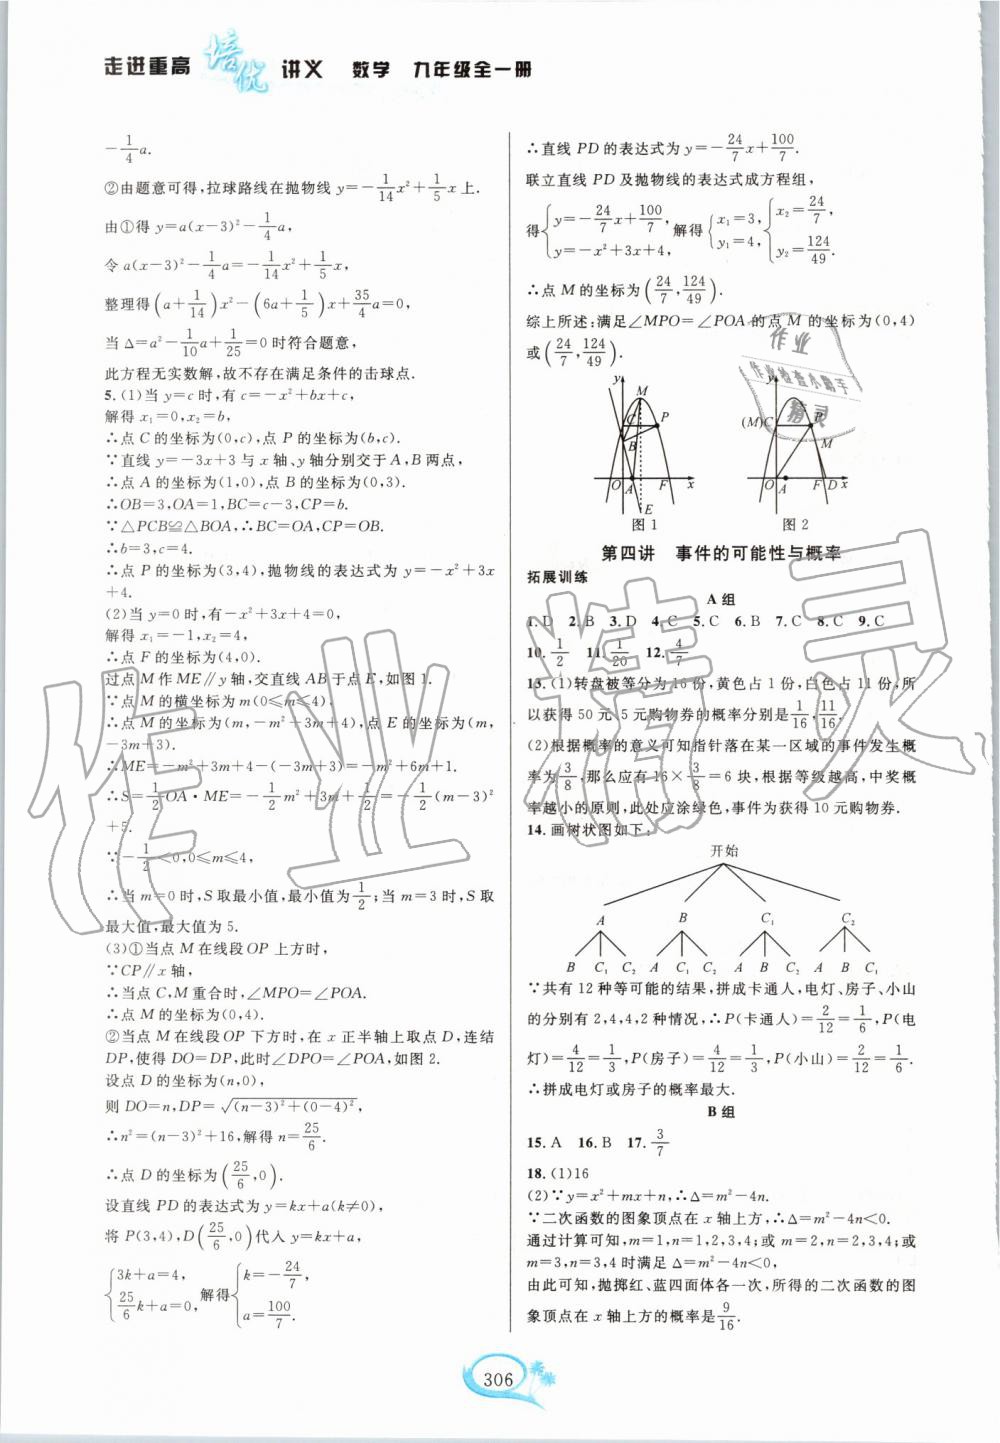 走进重高 培优 讲义 数学 九年级全一册
-1/4a.
②由题意可得,拉球路线在抛物线 y=-1/14x²+1/5x 上.
由①得 y=a(x-3)²-1/4a,
令 a(x-3)²-1/4a=-1/14x²+1/5x,
整理得(a+1/14)x²-(6a+1/5)x+35/4a=0,
当 Δ=a²-1/10a+1/25=0 时符合题意,
此方程无实数解,故不存在满足条件的击球点.
5. (1)当 y=c 时,有 c=-x²+bx+c,
解得 x₁=0,x₂=b,
∴点 C 的坐标为(0,c),点 P 的坐标为(b,c).
∵直线 y=-3x+3 与 x 轴、y 轴分别交于 A,B 两点,
∴点 A 的坐标为(1,0),点 B 的坐标为(0,3).
∴OB=3,OA=1,BC=c-3,CP=b.
∵△PCB≌△BOA,∴BC=OA,CP=OB.
∴b=3,c=4.
∴点 P 的坐标为(3,4),抛物线的表达式为 y=-x²+3x
+4.
(2)当 y=0 时,有-x²+3x+4=0,
解得 x₁=-1,x₂=4,
∴点 F 的坐标为(4,0).
过点 M 作 ME∥y 轴,交直线 AB 于点 E,如图 1.
∵点 M 的横坐标为 m(0≤m≤4),
∴点 M 的坐标为(m,-m²+3m+4),点 E 的坐标为(m,
-3m+3).
∴ME=-m²+3m+4-(-3m+3)=-m²+6m+1.
∴S=1/2OA·ME=-1/2m²+3m+1/2=-1/2(m-3)²
+5.
∵-1/2<0,0≤m≤4,
∴当 m=0 时,S 取最小值,最小值为1/2;当 m=3 时,S 取
最大值,最大值为 5.
(3)①当点 M 在线段 OP 上方时,
∵CP∥x 轴,
∴当点 C,M 重合时,∠MPO=∠POA.
∴点 M 的坐标为(0,4).
②当点 M 在线段 OP 下方时,在 x 正半轴上取点 D,连结
DP,使得 DO=DP,此时∠DPO=∠POA,如图 2.
设点 D 的坐标为(n,0),
则 DO=n,DP=√((n-3)²+(0-4)²),
∴n²=(n-3)²+16,解得 n=25/6.
∴点 D 的坐标为(25/6,0).
设直线 PD 的表达式为 y=kx+a(k≠0),
将 P(3,4),D(25/6,0)代入 y=kx+a,
{3k+a=4, 25/6k+a=0, 解得{k=-24/7, a=100/7.
∴直线 PD 的表达式为 y=-24/7x+100/7.
联立直线 PD 及抛物线的表达式成方程组,
得{y=-24/7x+100/7, y=-x²+3x+4, 解得{x₁=3, y₁=4, {x₂=24/7, y₂=124/49.
∴点 M 的坐标为(24/7,124/49).
综上所述:满足∠MPO=∠POA 的点 M 的坐标为(0,4)
或(24/7,124/49).
y M C P B O A F x E
图 1
y (M)C P M O A F D x
图 2
第四讲 事件的可能性与概率
拓展训练
A 组
1. D 2. B 3. D 4. C 5. C 6. B 7. C 8. C 9. C
10. 1/2 11. 1/20 12. 4/7
13. (1)转盘被等分为 16 份,黄色占 1 份,白色占 11 份,所
以获得 50 元、5 元购物券的概率分别是1/16,11/16.
(2)根据概率的意义可知指针落在某一区域的事件发生概
率为3/8,那么应有 16×3/8=6 块,根据等级越高,中奖概
率越小的原则,此处应涂绿色,事件为获得 10 元购物券.
14. 画树状图如下:
开始
A B C₁ C₂
B C₁ C₂ A C₁ C₂ A B C₂ A B C₁
∵共有 12 种等可能的结果,拼成卡通人,电灯、房子、小山
的分别有 2,4,4,2 种情况,∴P(卡通人)=2/12=1/6,P(电
灯)=4/12=1/3,P(房子)=4/12=1/3,P(小山)=2/12=1/6.
∴拼成电灯或房子的概率最大.
B 组
15. A 16. B 17. 3/7
18. (1)16
(2)∵y=x²+mx+n,∴Δ=m²-4n.
∵二次函数的图象顶点在 x 轴上方,∴Δ=m²-4n<0.
通过计算可知,m=1,n=1,2,3,4;或 m=2,n=2,3,4;或
m=3,n=3,4 时满足 Δ=m²-4n<0.
由此可知,抛掷红、蓝四面体各一次,所得的二次函数的图
象顶点在 x 轴上方的概率是9/16.
306
作业精灵
作业
作业检查小帮手
精灵